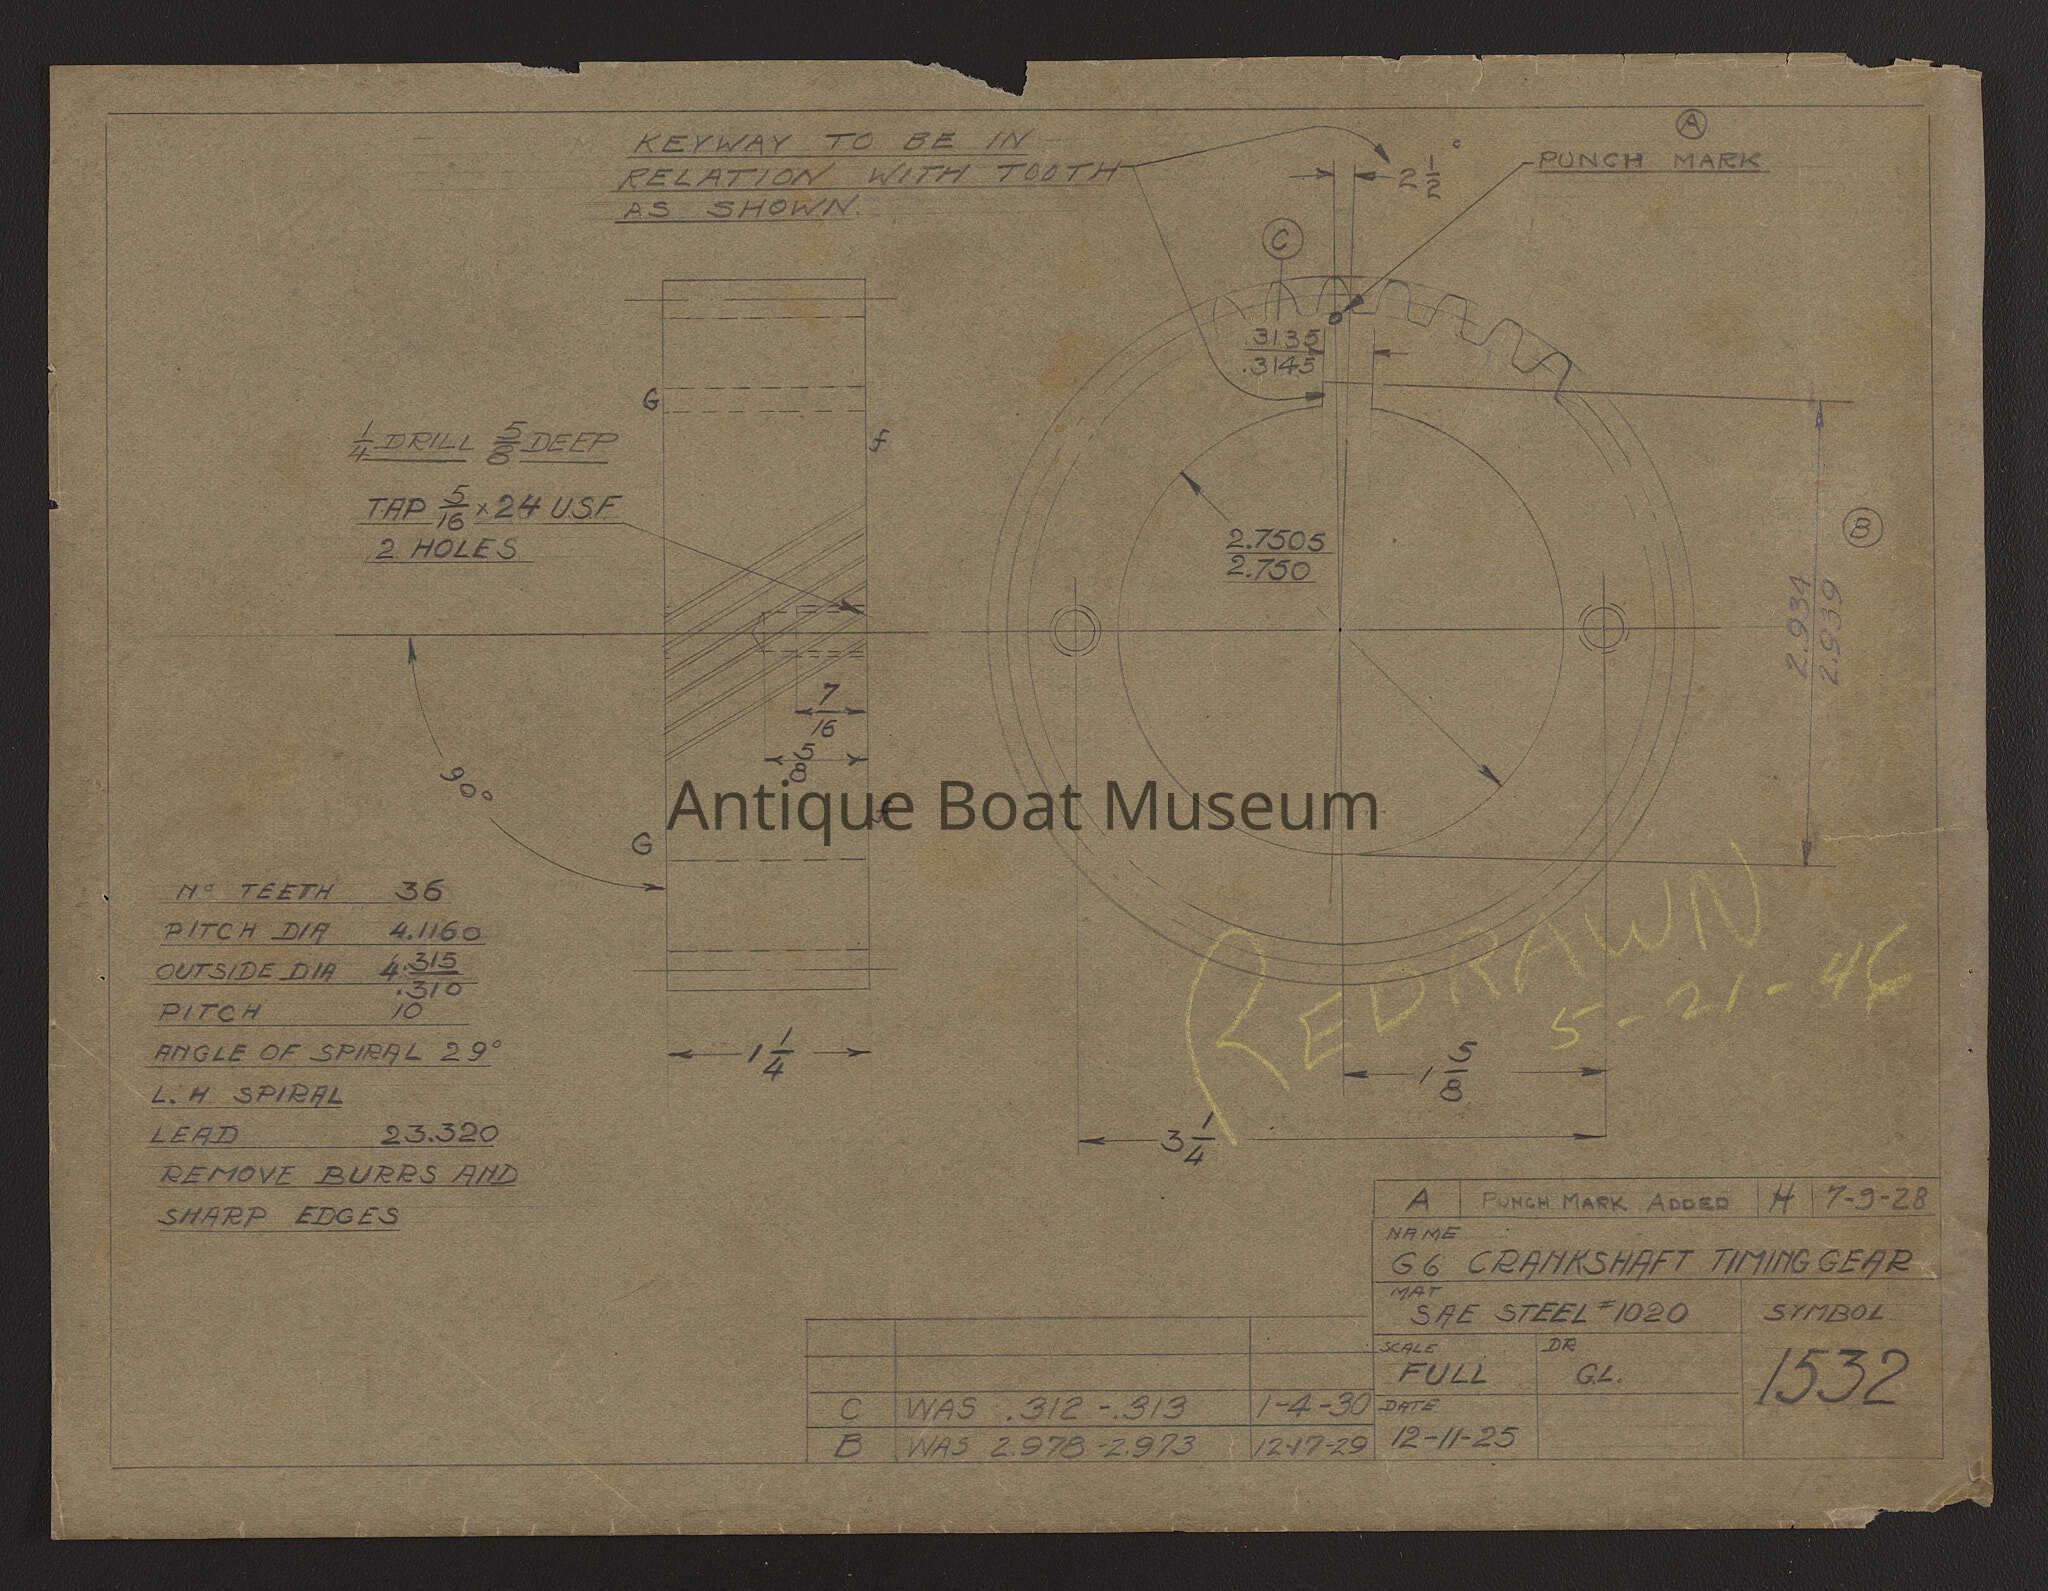 KEYWAY TO BE IN
RELATION WITH TOOTH
AS SHOWN.
2 1/2°
A
PUNCH MARK
C
.3135
.3145
G
f
1/4 DRILL 5/8 DEEP
TAP 5/16 x 24 U.S.F
2 HOLES
2.7505
2.750
B
2.934
2.939
7/16
5/8
90°
Antique Boat Museum
f
G
No TEETH 36
PITCH DIA 4.1160
OUTSIDE DIA 4.315
.310
PITCH 10
ANGLE OF SPIRAL 29°
L. H SPIRAL
LEAD 23.320
REMOVE BURRS AND
SHARP EDGES
1 1/4
REDRAWN
5-21-46
1 5/8
3 1/4
A PUNCH MARK ADDED H 7-9-28
NAME
G6 CRANKSHAFT TIMING GEAR
MAT
SAE STEEL #1020
SYMBOL
1532
SCALE
FULL
DR
G.L.
DATE
12-11-25
C WAS .312 -.313 1-4-30
B WAS 2.978 -2.973 12-17-29